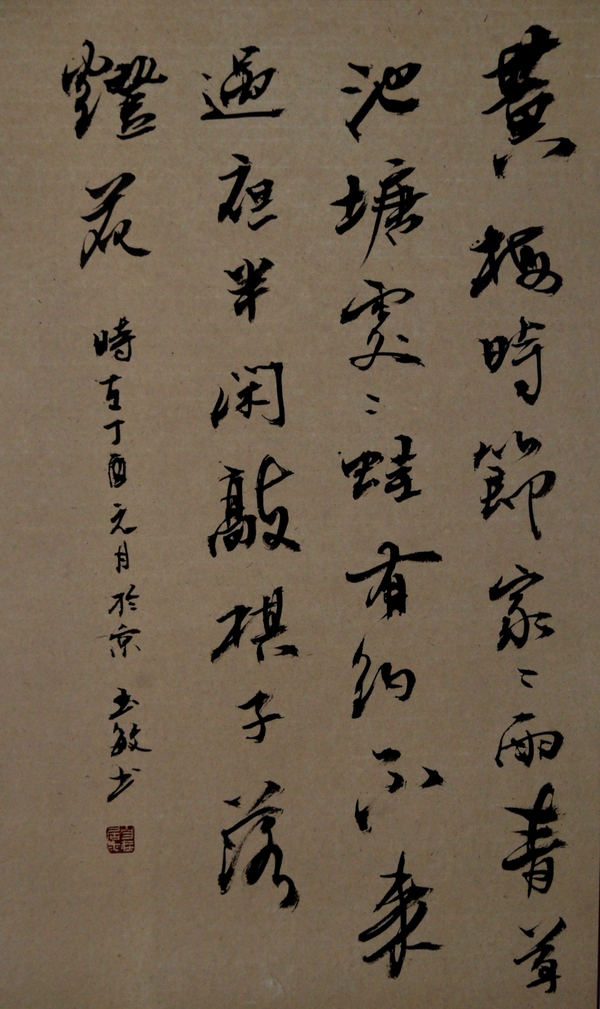 黄梅時節家〻雨青草
池塘處〻蛙有約不來
過夜半閑敲棋子落
燈花
時在丁酉元月於京 玉敏书